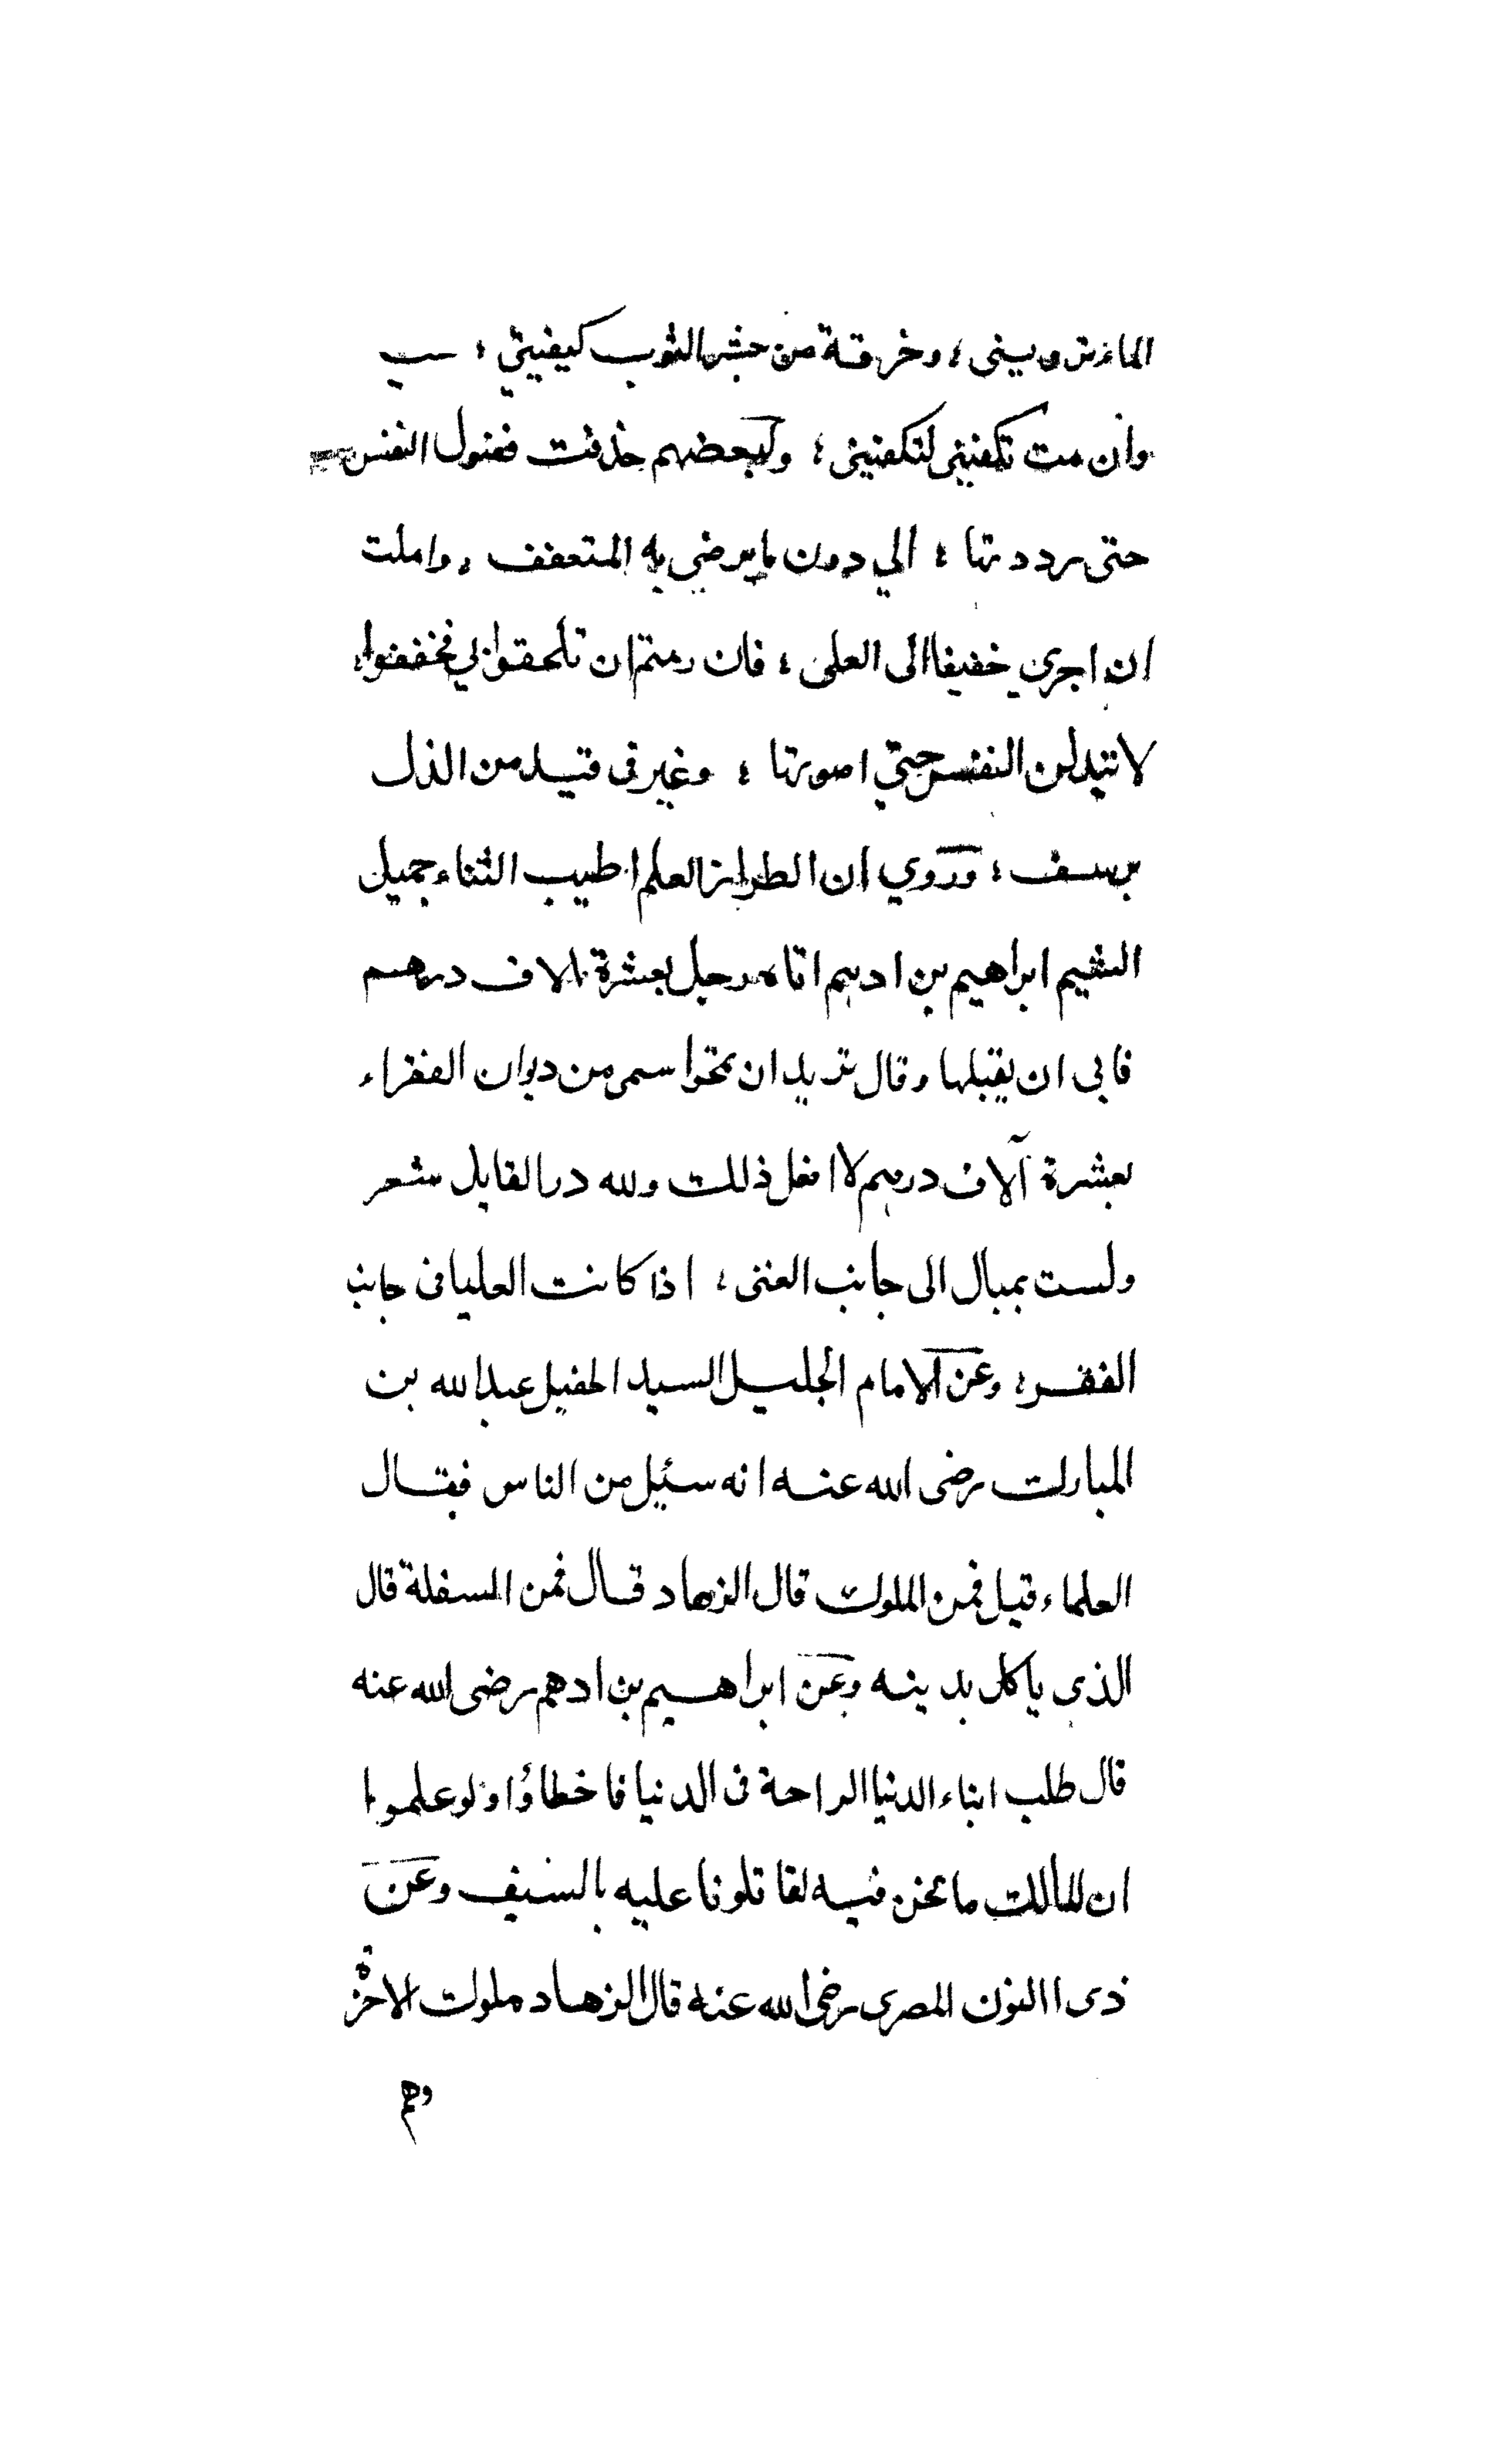 الماء تروينى ؛ وخرقة من خشن الثوب تكفينى ؛
وان مت تكفينى لتكفينى ؛ ولبعضهم حذفت فضول النفس
حتى رددتها ؛ الي دون ما يرضى به المتعفف ، واملت
ان اجري خفيفا الى العلى ؛ فان رمتم ان تلحقوا بي فخففوا
لا تبدلن النفس حتي اصونها ؛ وغيرى في قيد من الذل
يرسف ؛ وروي ان الطراز العلم اطيب الثناء جميل
الشيم ابراهيم بن ادهم اتاه رجل بعشرة الاف درهم
فابى ان يقبلها وقال تريد ان تمحوا اسمى من ديوان الفقراء
بعشرة آلاف درهم لا افعل ذلك ولله در القايل شعر
ولست بميال الى جانب الغنى ؛ اذا كانت العليا فى جانب
الفقر ؛ وعن الامام الجليل السيد الحفيل عبدالله بن
المبارك رضى الله عنه انه سئيل من الناس فقال
العلماء قيل فمن الملوك قال الزهاد قال فمن السفلة قال
الذى ياكل بدينه وعن ابراهيم بن ادهم رضى الله عنه
قال طلب ابناء الدنيا الراحة فى الدنيا فاخطاؤا ولو علموا
ان الملك ما نحن فيه لقاتلونا عليه بالسيف وعن
ذى االنون المصرى رضى الله عنه قال الزهاد ملوك الاخرة
وهم